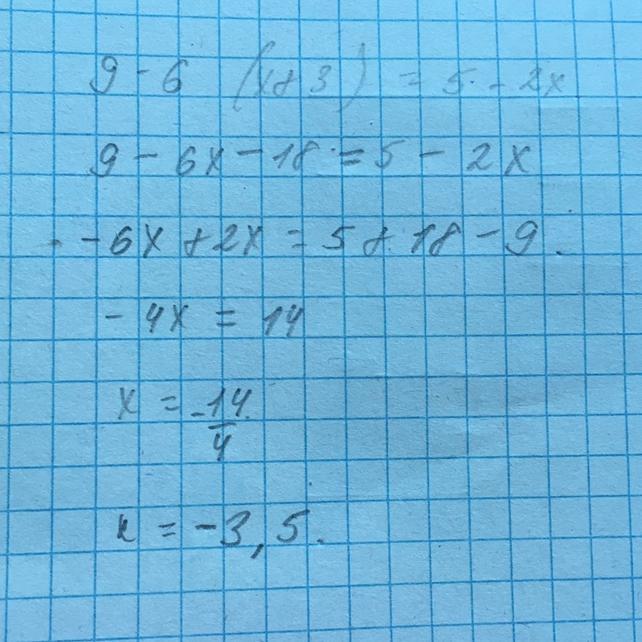 9 - 6 (x + 3) = 5 - 2x
9 - 6x - 18 = 5 - 2x
-6x + 2x = 5 + 18 - 9
-4x = 14
x = -14/4
x = -3,5.